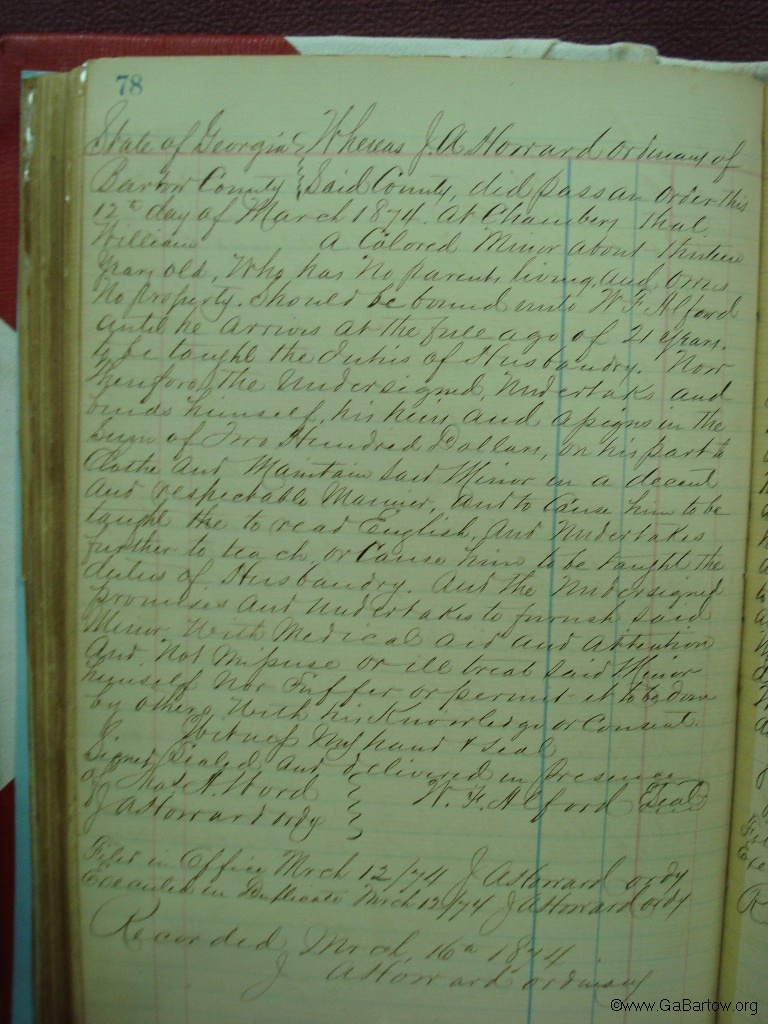 78
State of Georgia } Whereas J. A. Howard ordinary of
Bartow County } Said County, did pass an order this
12th day of March 1874. At Chambers that
William a Colored Minor about thirteen
years old, Who has No parents living, and owns
No property. Should be bound unto W F Alford
until he arrives at the full age of 21 years.
to be taught the duties of Husbandry. Now
Therefore, the Undersigned, Undertakes and
binds himself, his heirs and assigns in the
Sum of Two Hundred Dollars, on his part to
Clothe and Maintain said Minor in a decent
And respectable Manner, and to Cause him to be
taught the to read English, And Undertakes
further to teach, or Cause him to be taught the
duties of Husbandry. And the Undersigned
promises and undertakes to furnish said
Minor With Medical aid and Attention
And Not Misuse or ill treat said Minor
himself Nor Suffer or permit it to be done
by others With his Knowledge or Consent.
Witness My hand & Seal
Signed, Sealed, and delivered in presence
of A. Word } W. F. Alford Seal
J A Howard ordy }
Filed in Office Mrch 12/74 J A Howard ordy
Executed in Duplicate Mrch 12/74 J A Howard ordy
Recorded Mrch, 16th 1874
J A Howard ordinary
©www.GaBartow.org